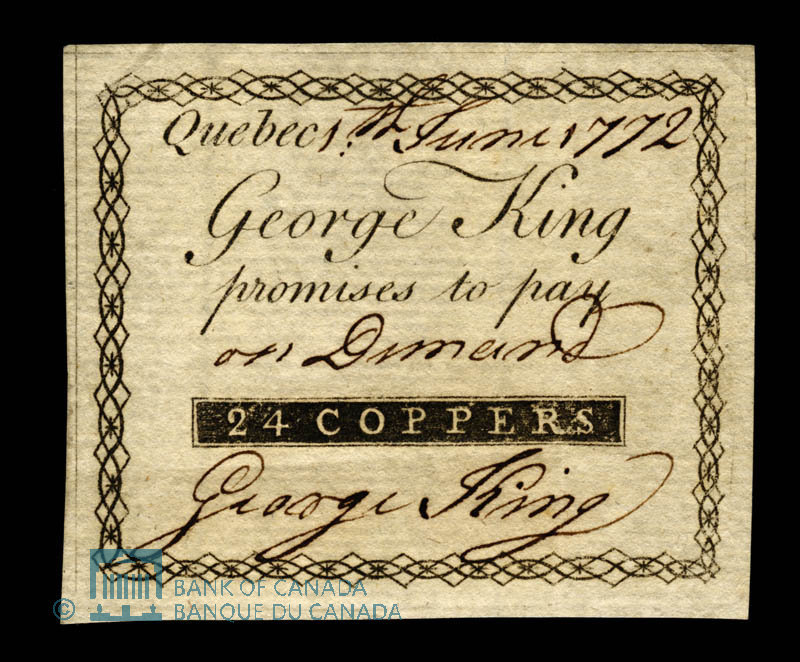 Quebec 1.th June 1772
George King
promises to pay
on Dimand
24 COPPERS
George King
© BANK OF CANADA
BANQUE DU CANADA